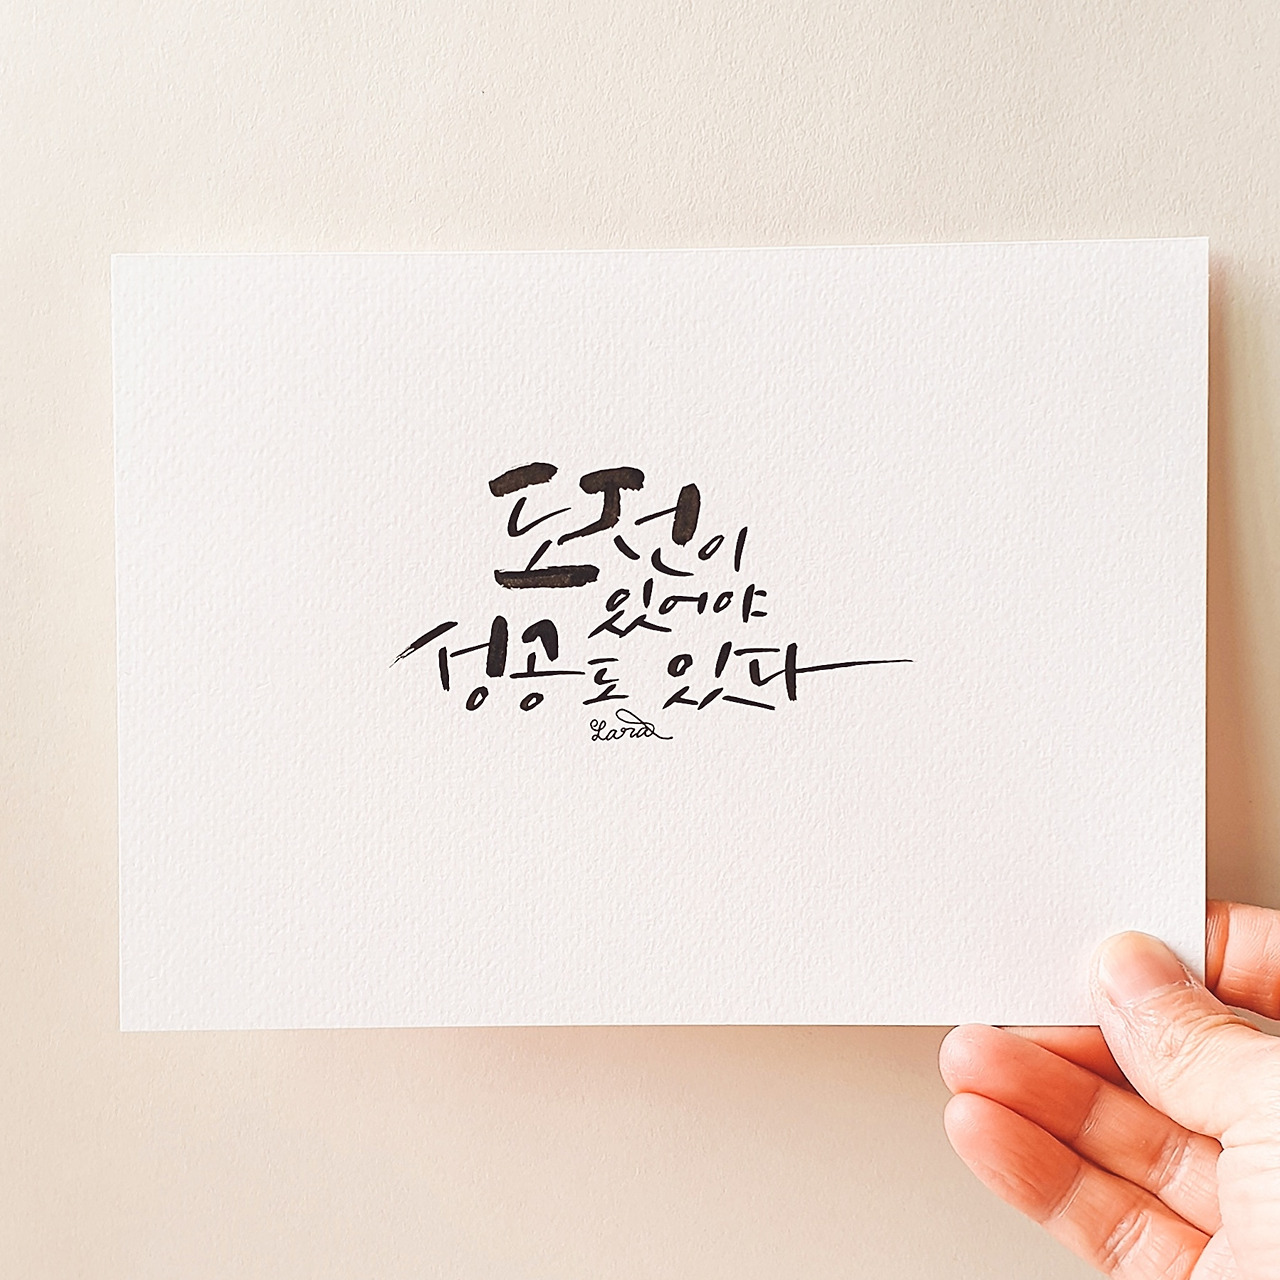 도전이
있어야
성공도 있다
Lara